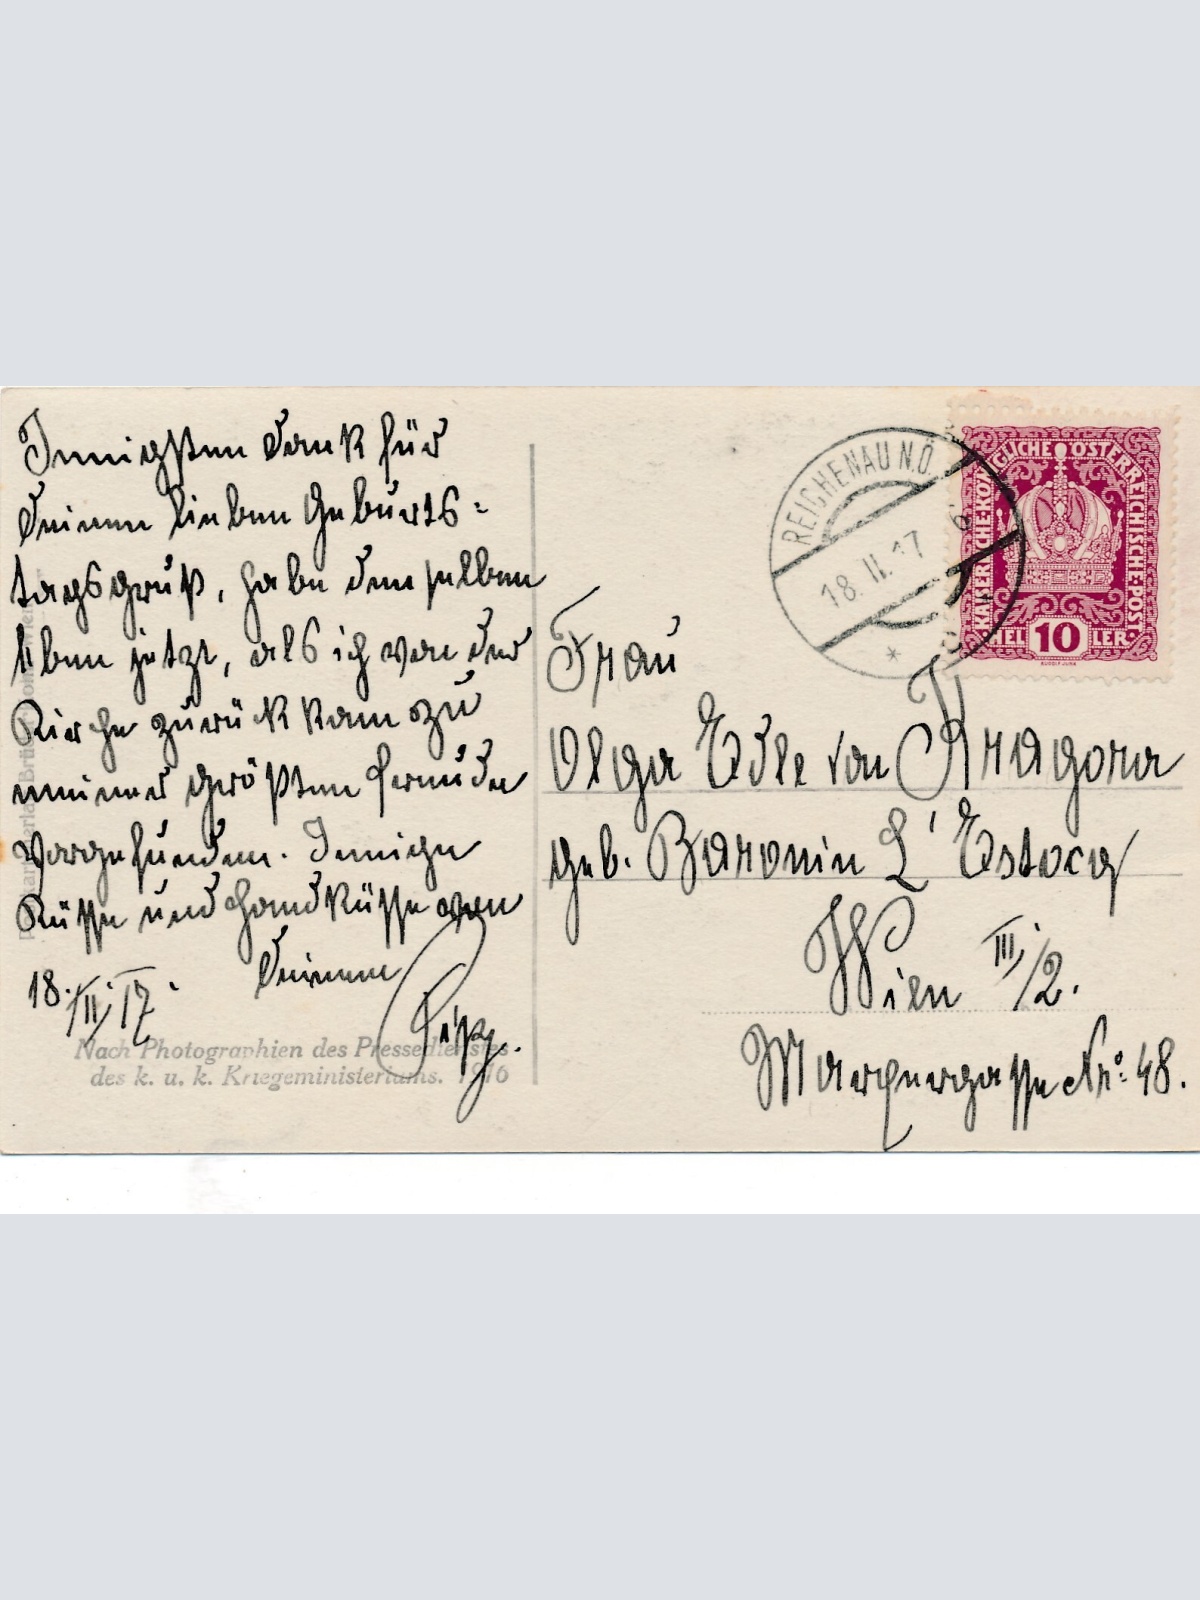 Innigsten Dank für
Deinen lieben Geburts-
tagsgruß, habe denselben
eben jetzt, als ich von der
Kirche zurück kam zu
meiner größten Freude
vorgefunden. Innige
Küsse und Handküsse von
Deinem
18./II. 17.
Nach Photographien des Pressedienstes
des k. u. k. Kriegsministeriums. 1916
REICHENAU N.Ö.
18. II. 17
KAISERLICHE KÖNIGLICHE ÖSTERREICHISCHE POST
HEL 10 LER
Frau
Olga Edle von Kragora
geb. Baronin L'Estocq
Wien III/2.
Marxergasse Nro: 48.